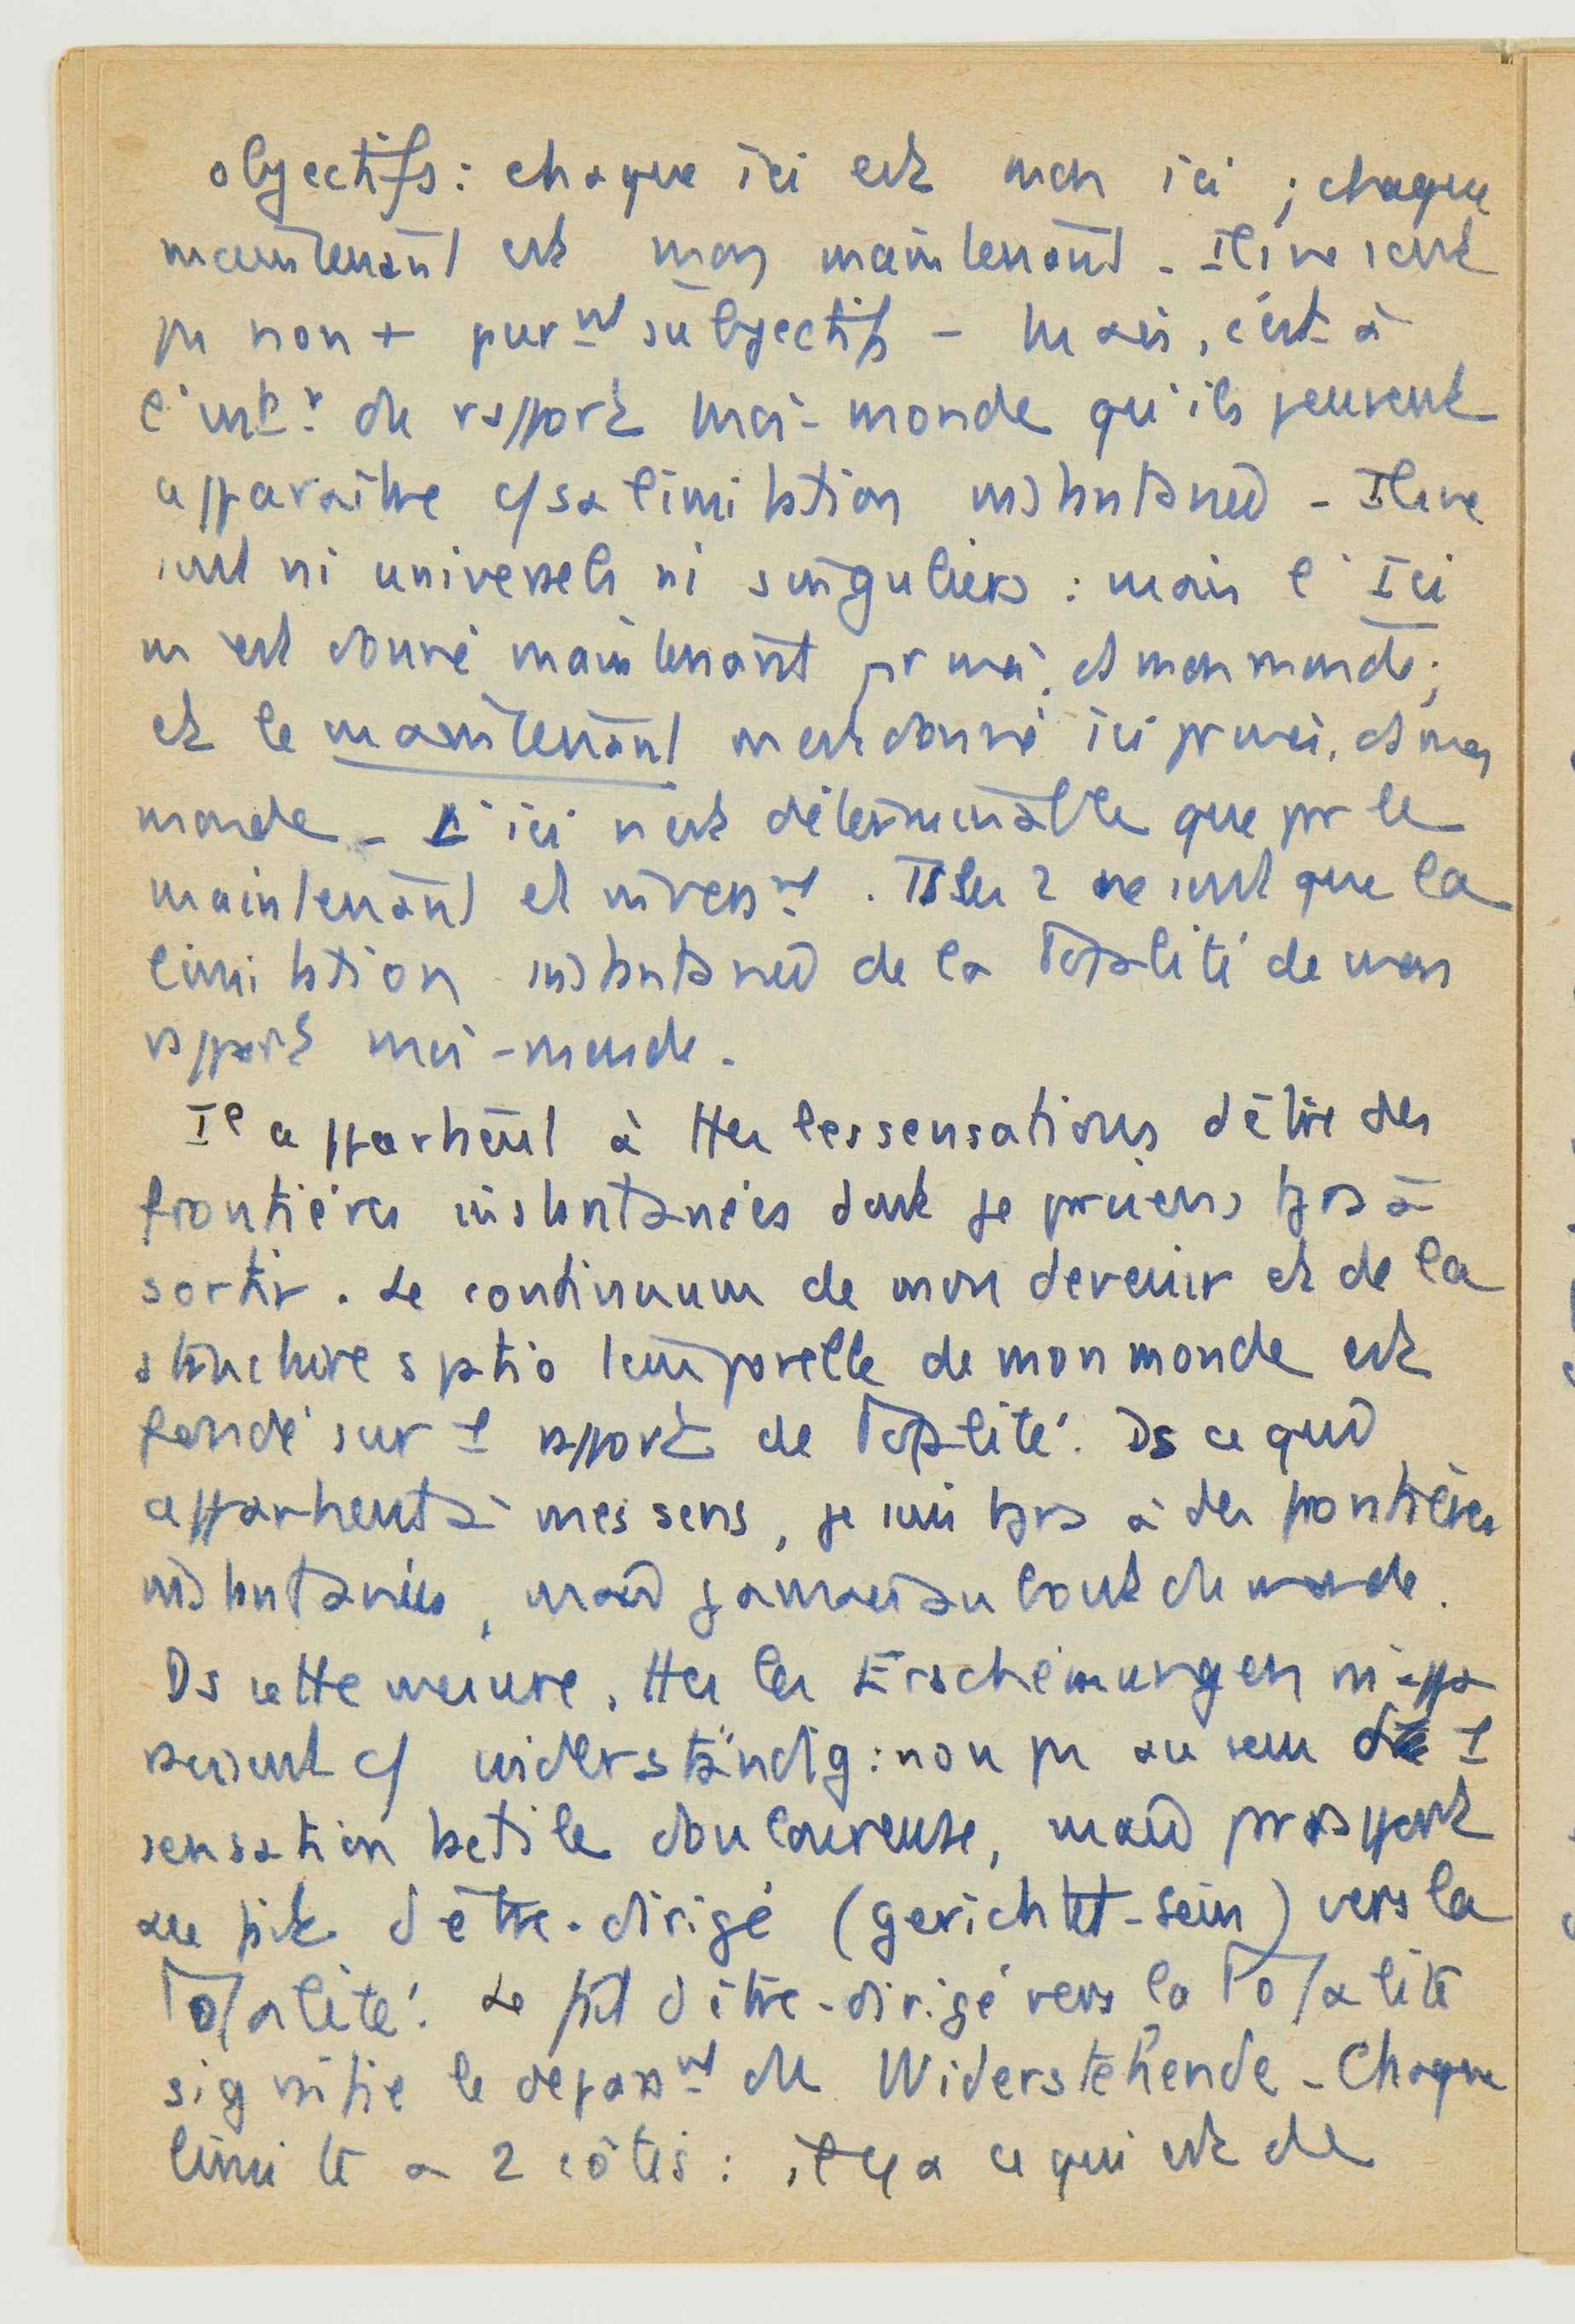 objectifs : chaque ici est mon ici ; chaque
maintenant est mon maintenant - Ils ne sont
pas non + purmt subjectifs - Mais, c'est à
l'intr du rapport moi-monde qu'ils peuvent
apparaître c/ sa limitation instantanée - Ils ne
sont ni universels ni singuliers : mais l'Ici
m'est donné maintenant pr moi, ds mon monde ;
et le maintenant m'est donné ici pr moi, ds mon
monde - L'ici n'est déterminable que pr le
maintenant et inversmt. Ts les 2 ne sont que la
limitation instantanée de la Totalité de mon
rapport moi-monde.
Il appartient à ttes les sensations d'être des
frontières instantanées dont je parviens tjrs à
sortir. Le continuum de mon devenir et de la
structure spatio temporelle de mon monde est
fondé sur 1 rapport de Totalité. Ds ce qui
appartient à mes sens, je suis tjrs à des frontières
instantanées, mais jamais au bout du monde.
Ds cette mesure, ttes les Erscheinungen m'appa
raissent c/ widerständig : non pas au sens d' 1
sensation tactile douloureuse, mais pr rapport
au fait d'être-dirigé (gerichtet-sein) vers la
Totalité. Le fait d'être-dirigé vers la Totalité
signifie le dépassmt du Widerstehende - Chaque
limite a 2 côtés : il y a ce qui est de